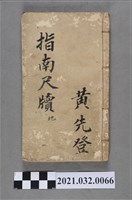 指南尺牘
黃先登
2021.032.0066